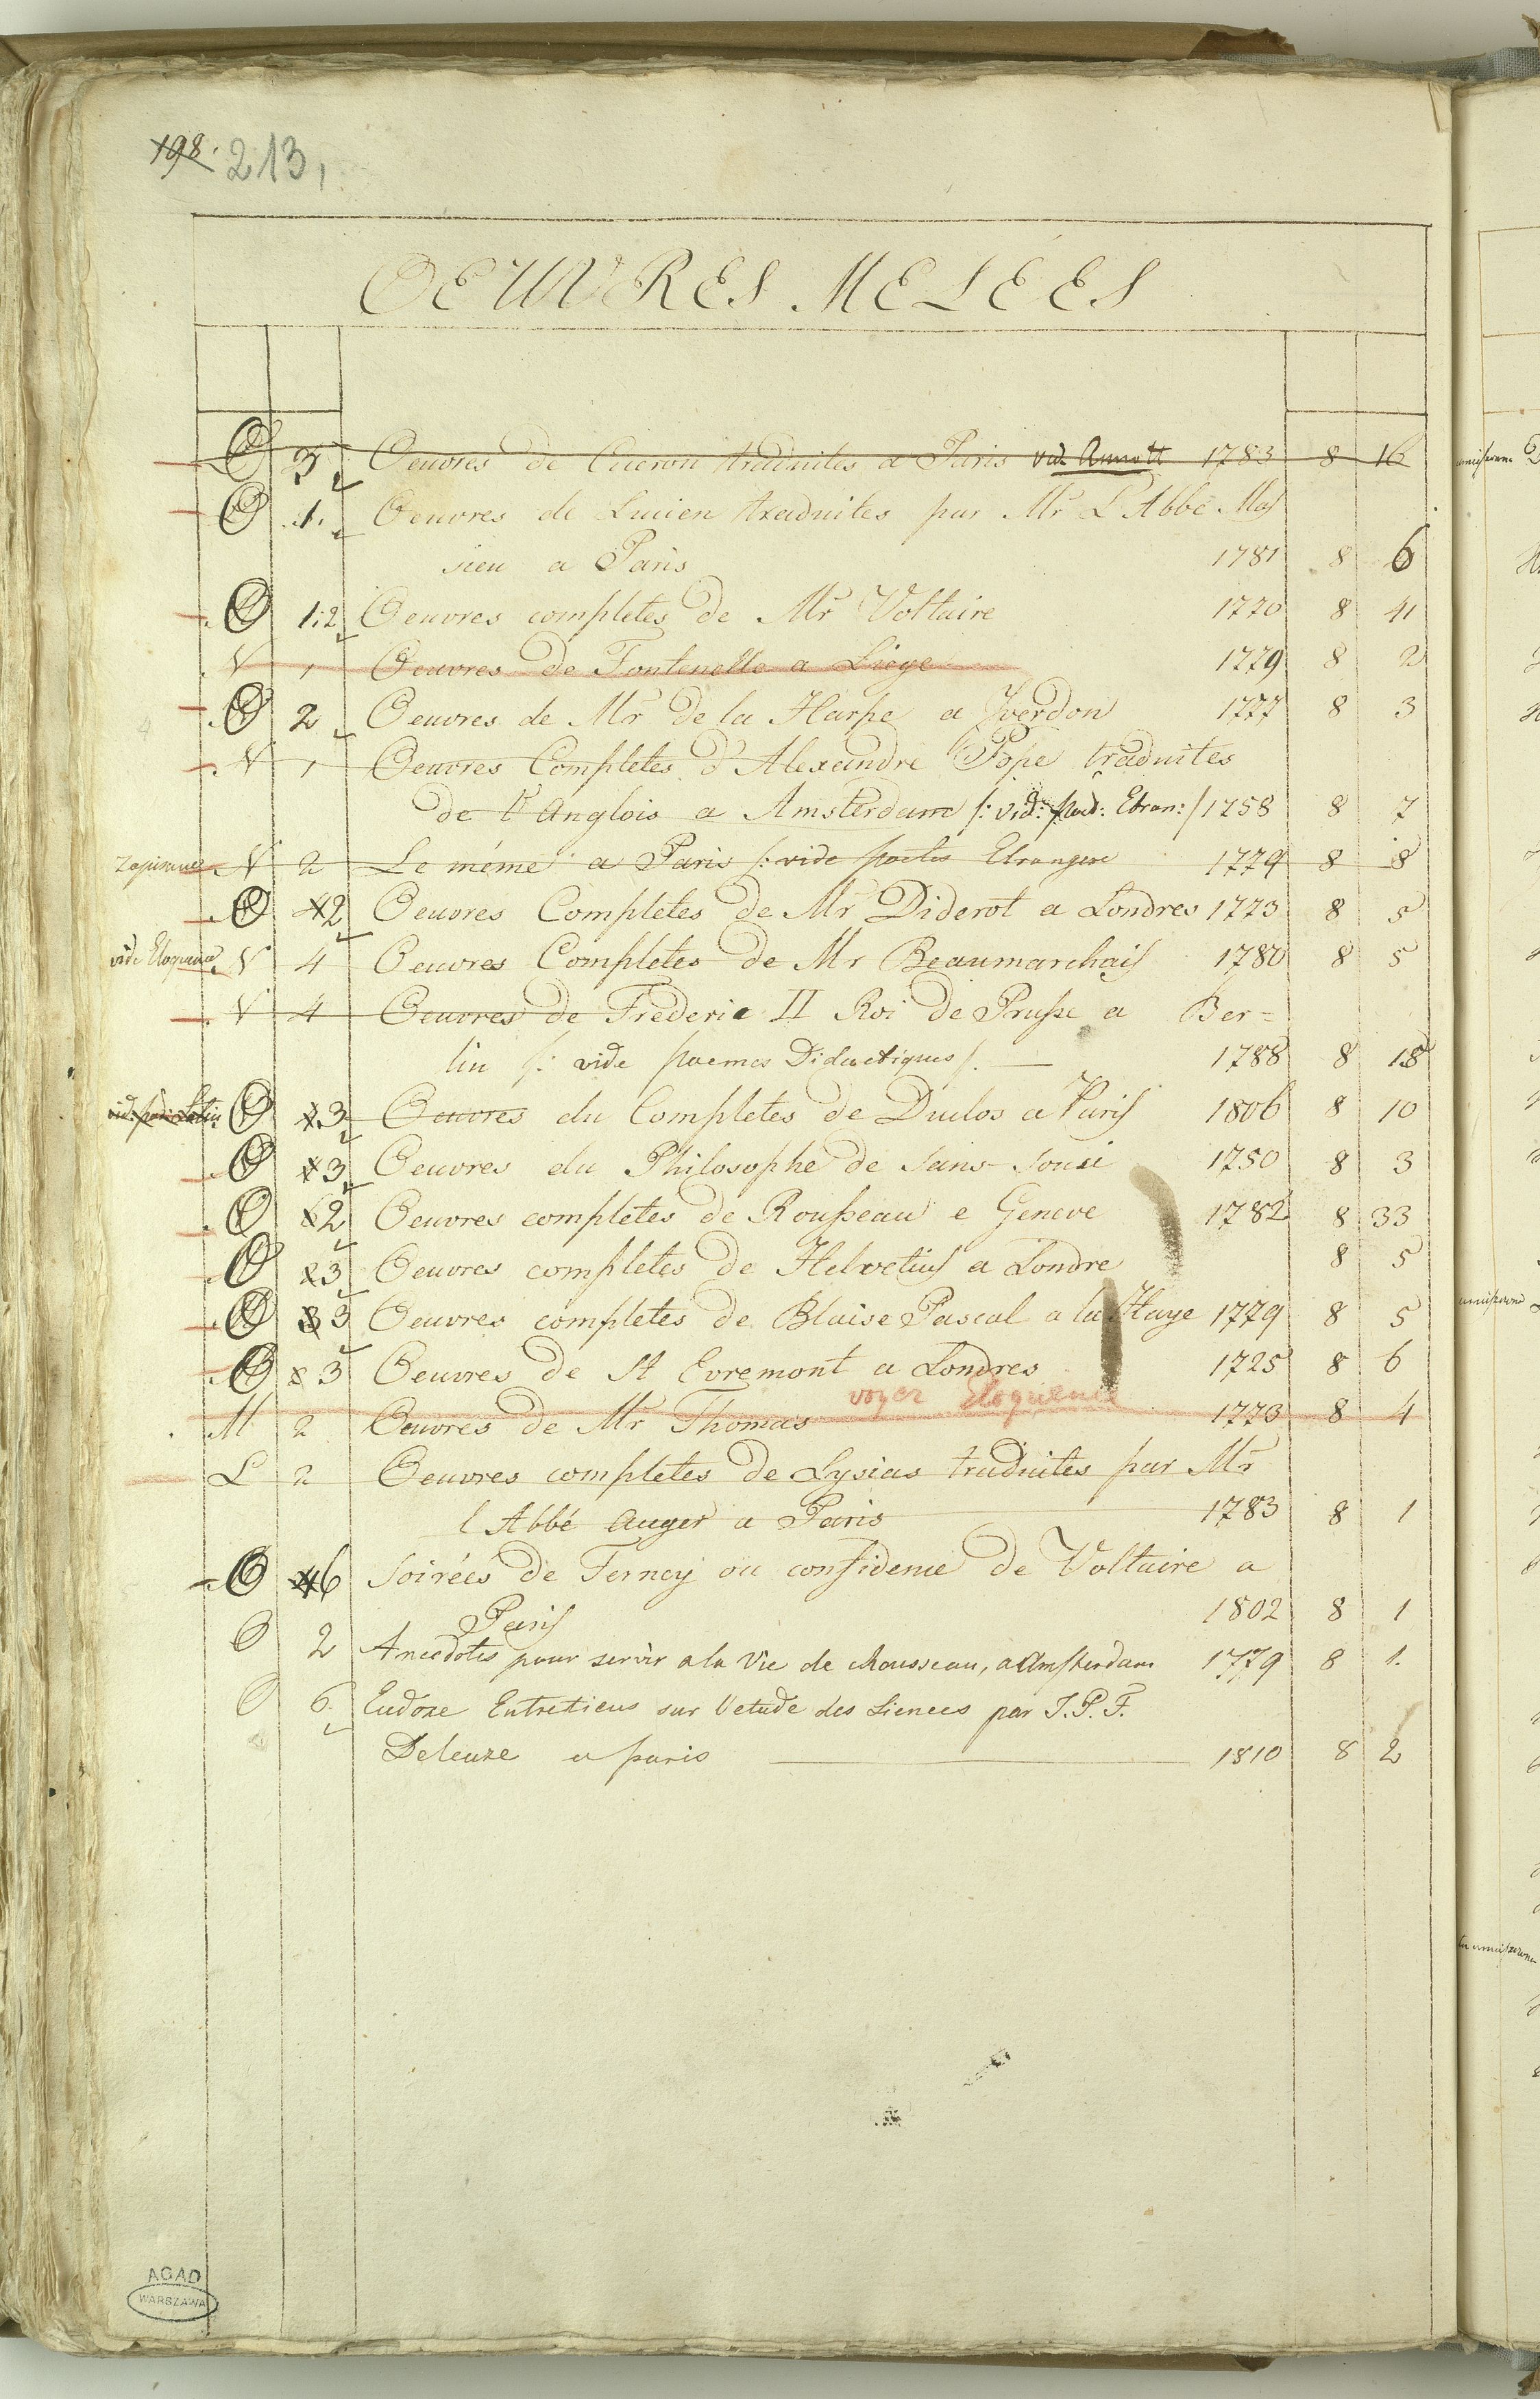 198. 213,
OEUVRES MELEES
O 3 Oeuvres de Ciceron traduites a Paris vid. Annott 1783 8 16
O 1. Oeuvres de Lucien traduites par Mr L'Abbé Mas
sieu a Paris 1781 8 6
O 1.2 Oeuvres completes de Mr Voltaire 1770 8 41
N 1 Oeuvres de Fontenelle a Liege 1779 8 2
O 2 Oeuvres de Mr de la Harpe a Yverdon 1777 8 3
N 1 Oeuvres Completes d'Alexandre Pope traduites
de l'Anglois a Amsterdam /: vid: Etran: / 1758 8 7
N 2 Le méme a Paris /: vide poetes Etrangers 1779 8 8
O 2 Oeuvres Completes de Mr Diderot a Londres 1773 8 5
vide Eloquence N 4 Oeuvres Completes de Mr Beaumarchais 1780 8 5
N 4 Oeuvres de Frederic II Roi de Prusse a Ber=
lin /: vide poemes Didactiques /. 1788 8 15
O 3 Oeuvres du Completes de Duclos a Paris 1806 8 10
O 3 Oeuvres du Philosophe de Sans-Souci 1750 8 3
O 2 Oeuvres completes de Rousseau e Geneve 1782 8 33
O 3 Oeuvres completes de Helvetius a Londre 8 5
O 3 Oeuvres completes de Blaise Pascal a la Haye 1779 8 5
O 3 Oeuvres de St Evremont a Londres 1725 8 6
voyer Eloquence
M 2 Oeuvres de Mr Thomas 1773 8 4
L 2 Oeuvres completes de Lysias traduites par Mr
l Abbé Auger a Paris 1783 8 1
O 6 Soirées de Ferney ou confidence de Voltaire a
Paris 1802 8 1
O 2 Anecdotes pour servir a la Vie de Rousseau, a Amsterdam 1779 8 1.
O 6. Eudoxe Entretiens sur l'etude des Siences par J. P. F.
Deleuze a paris 1810 8 2
AGAD
WARSZAWA